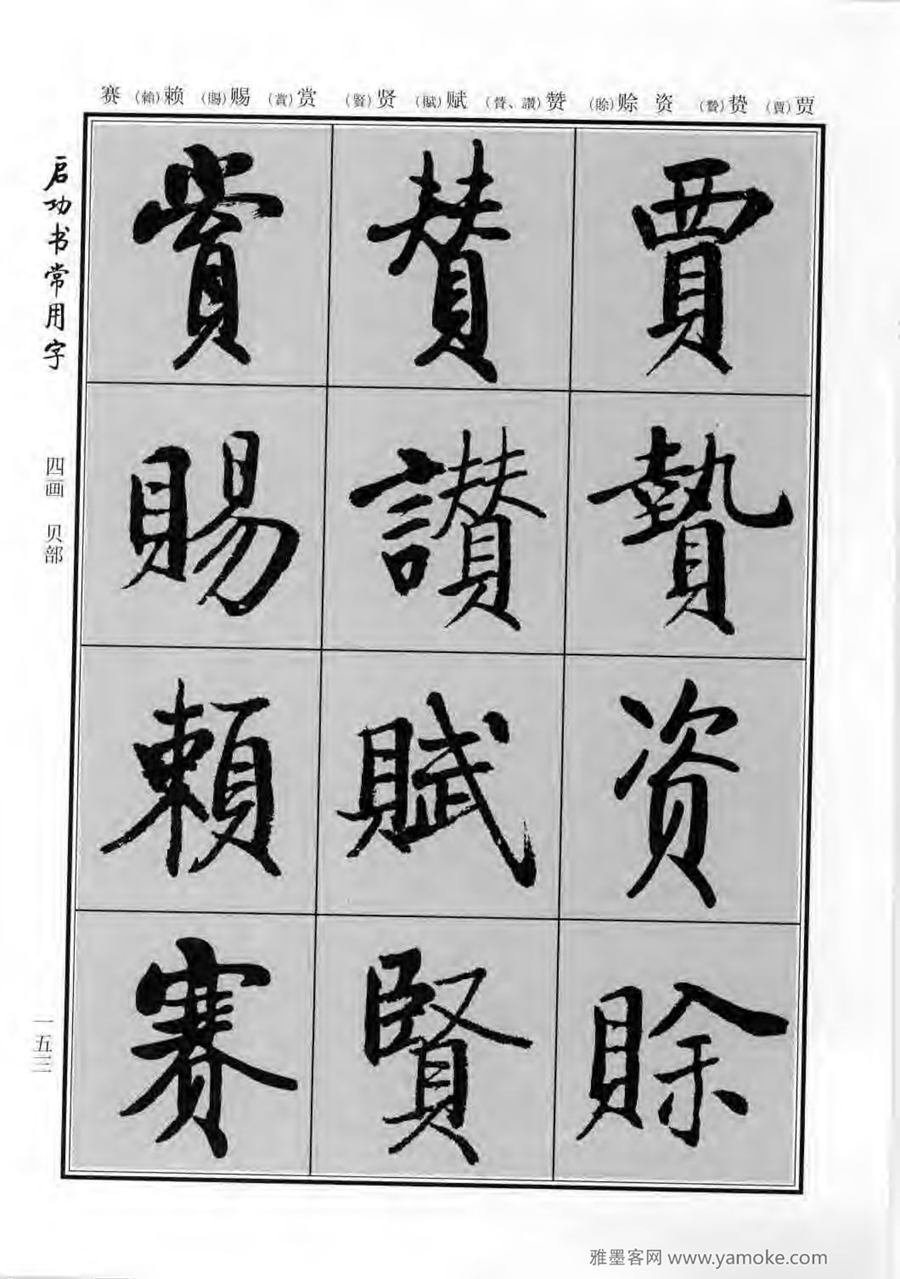 贾(賈) 贽(贄) 资 赊(賒) 赞(賛、讚) 赋(賦) 贤(賢) 赏(賞) 赐(賜) 赖(賴) 赛
賈
贄
资
賒
賛
讃
賦
賢
賞
賜
頼
赛
启功书常用字
四画 贝部
一五三
雅墨客网 www.yamoke.com